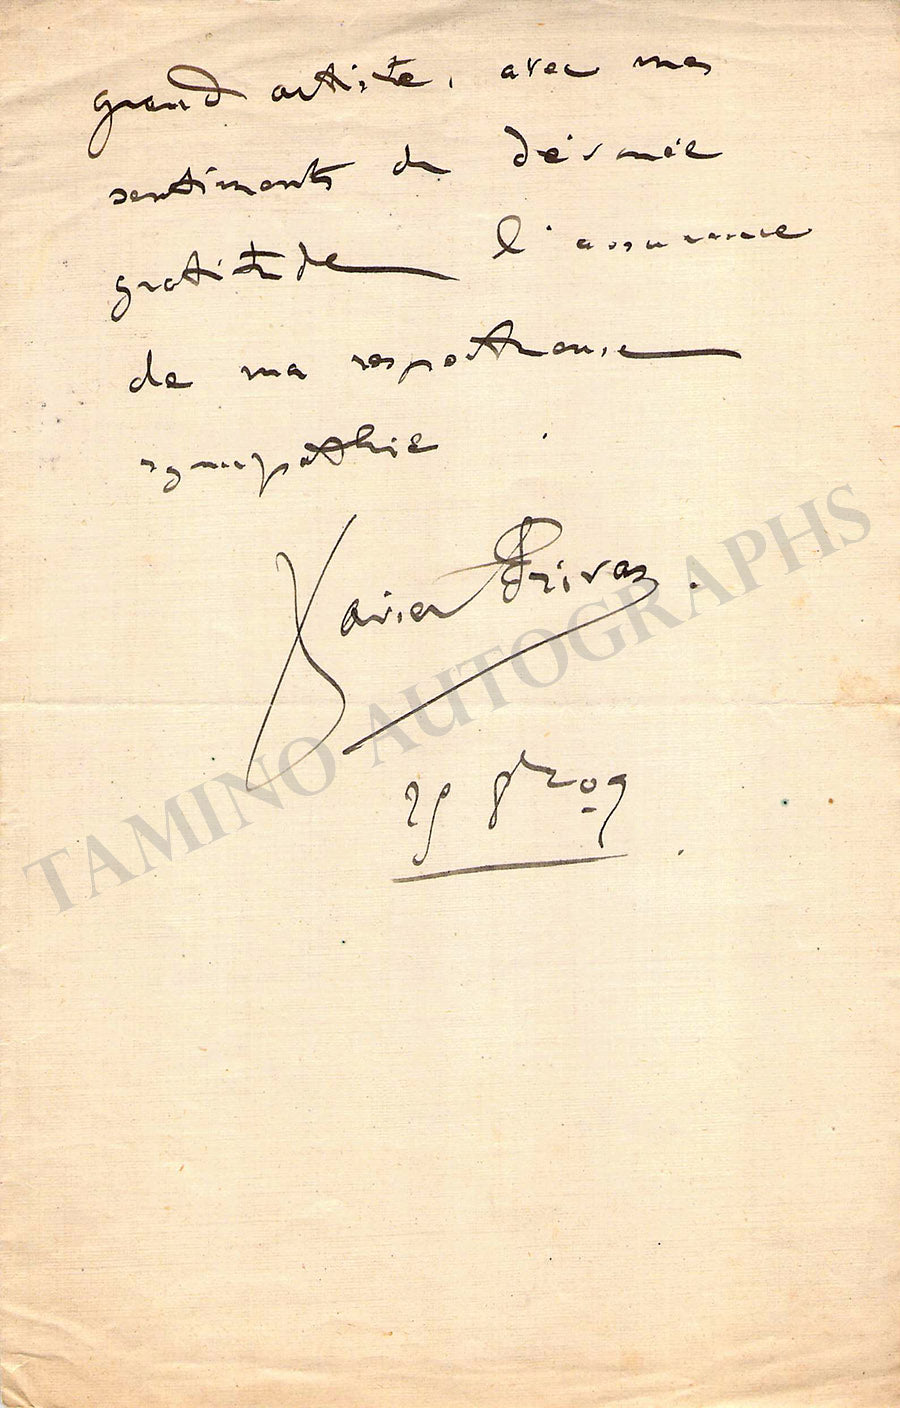 grand artiste, avec mes
sentiments de dévouée
gratitude l'assurance
de ma respectueuse
sympathie
Xavier Privas.
TAMINO AUTOGRAPHS
8bre 09